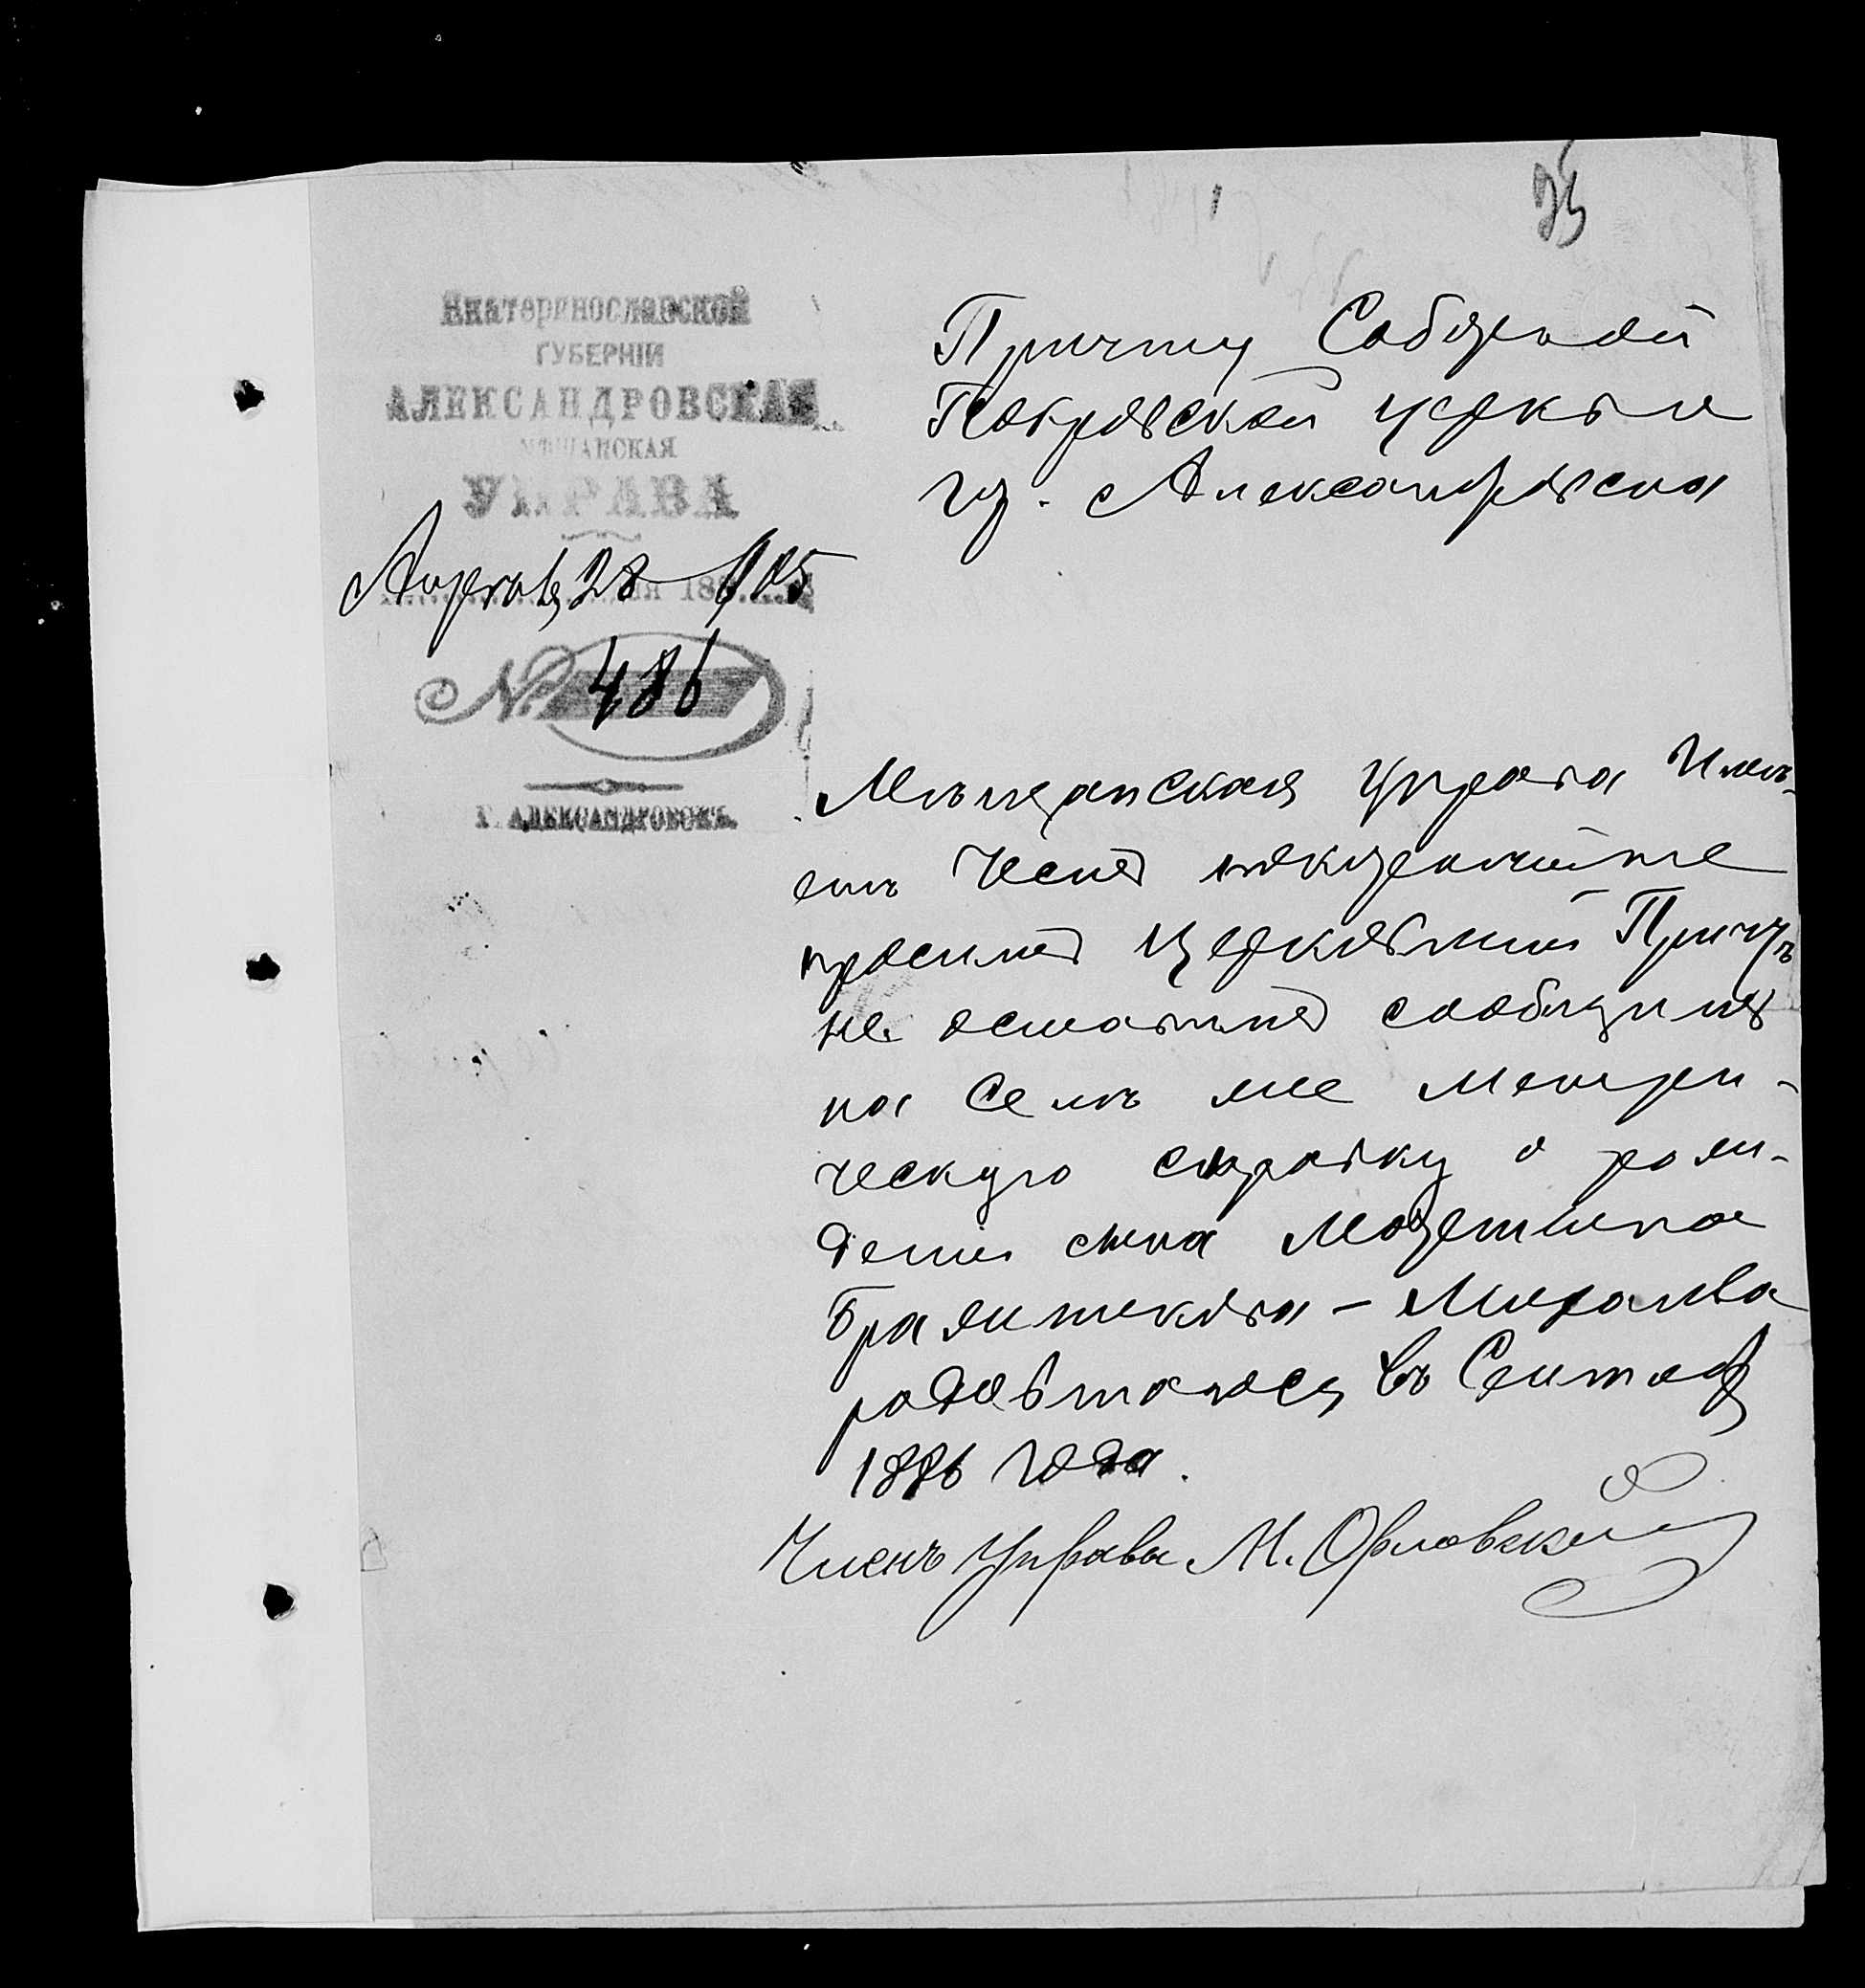 25
Екатеринославской
ГУБЕРНІИ
АЛЕКСАНДРОВСКАЯ
МѢЩАНСКАЯ
УПРАВА
Апрѣля 28 1905
№ 486
Г. АЛЕКСАНДРОВСКЪ.
Причту Соборной
Покровской церкви
гор. Александровска
Мѣщанская управа Имѣ-
етъ честь покорнѣйше
просить Церковный Причтъ
не оставить сообщить
на Семъ же Метри-
ческую справку о рож-
деніи сына
Бражникова - Михаила
родовшагося въ Сентябр
1886 года.
Членъ Управы М. Орловскій